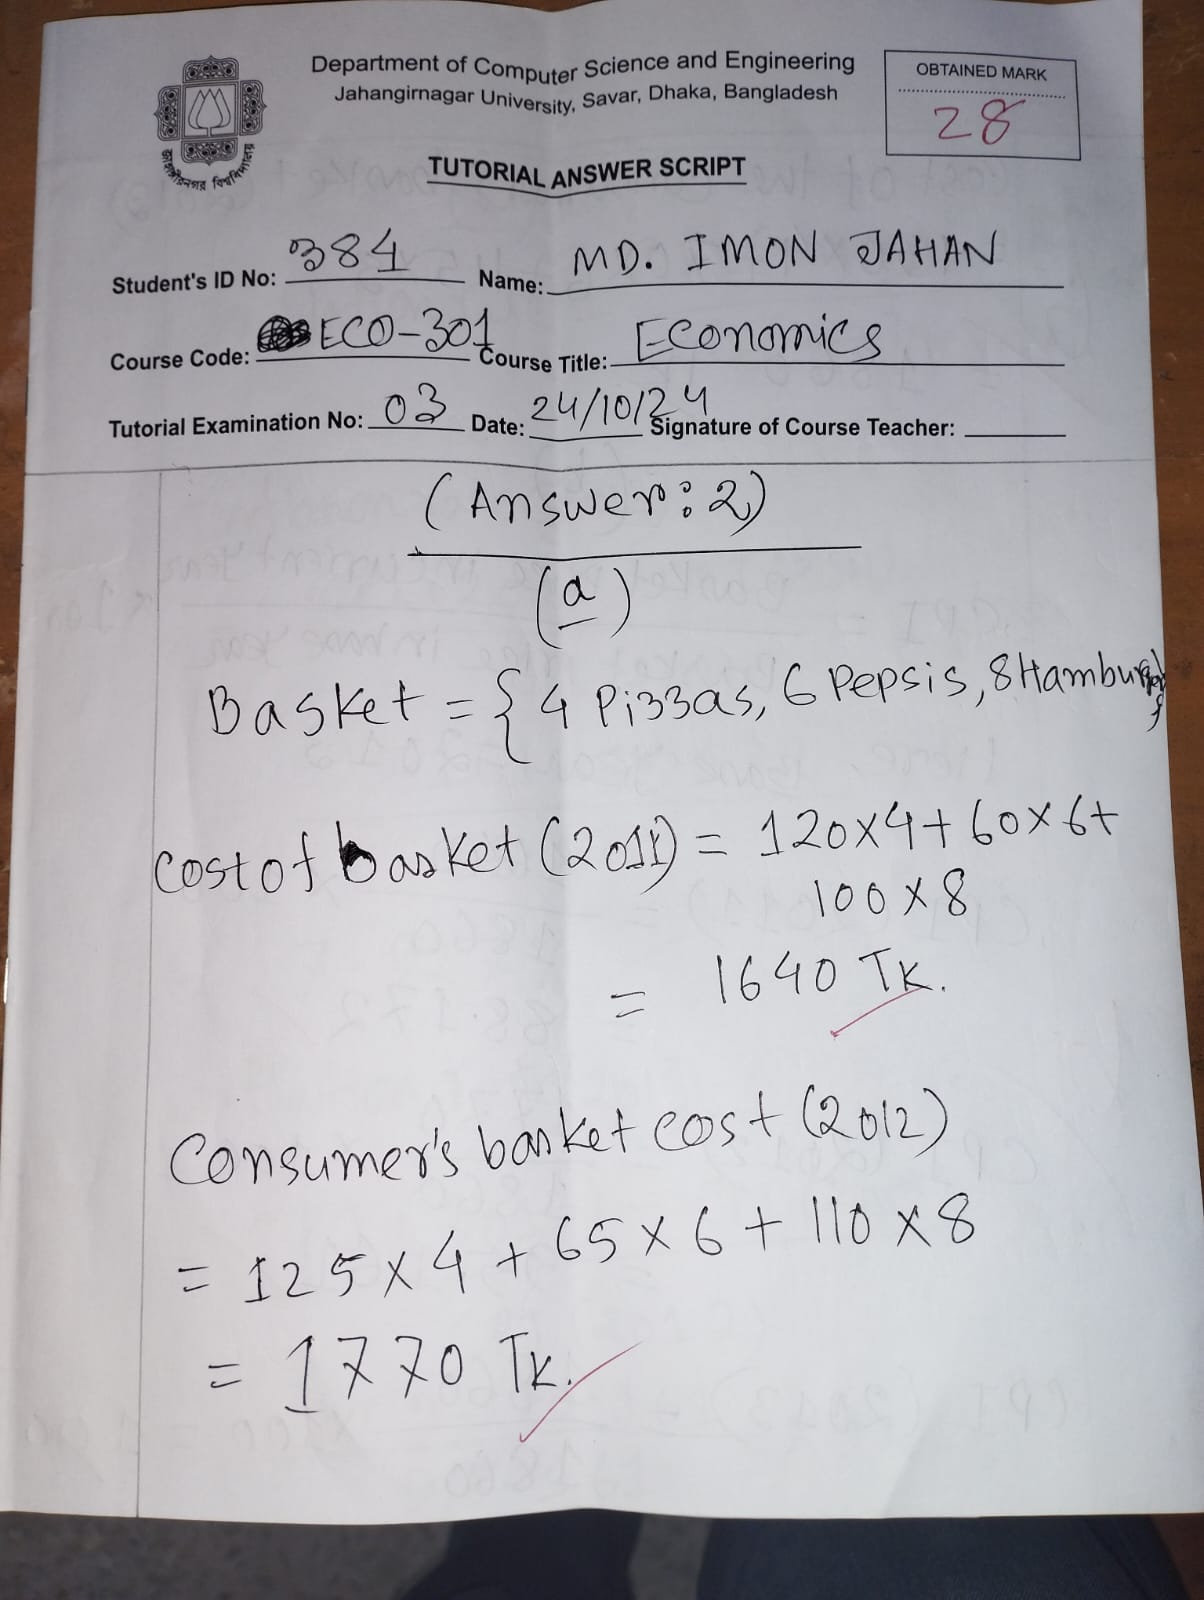 Department of Computer Science and Engineering
Jahangirnagar University, Savar, Dhaka, Bangladesh
OBTAINED MARK
28
জাহাঙ্গীরনগর বিশ্ববিদ্যালয়
TUTORIAL ANSWER SCRIPT
Student's ID No: 384 Name: MD. IMON JAHAN
Course Code: ECO-301 Course Title: Economics
Tutorial Examination No: 03 Date: 24/10/24 Signature of Course Teacher:
(Answer: 2)
(a)
Basket = { 4 Pizzas, 6 Pepsis, 8 Hamburgers
cost of basket (2011) = 120×4+60×6+
100×8
= 1640 TK.
Consumer's basket cost (2012)
= 125×4+65×6+110×8
= 1770 TK.